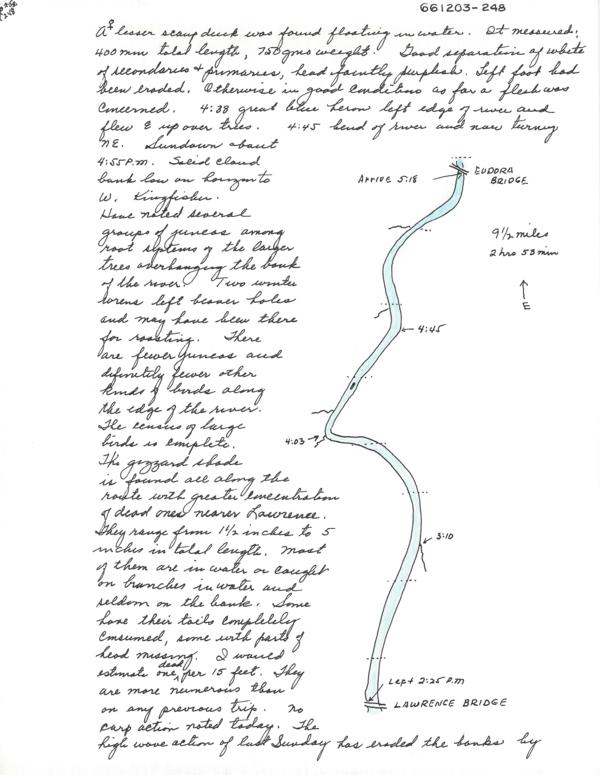 661203-248
A ♀ lesser scaup duck was found floating in water. It measured:
400 mm total length, 750 gms weight. Good separation of white
of secondaries + primaries, head faintly purplish. Left foot had
been eroded. Otherwise in good condition as far a flesh was
concerned. 4:38 great blue heron left edge of river and
flew E up over trees. 4:45 bend of river and now turning
NE. Sundown about
4:55 P.M. Solid cloud
bank low on horizon to
W. Kingfisher.
Have noted several
groups of juncos among
root systems of the larger
trees overhanging the bank
of the river. Two winter
wrens left beaver holes
and may have been there
for roosting. There
are fewer juncos and
definitely fewer other
kinds of birds along
the edge of the river.
The census of large
birds is complete.
The gizzard shade
is found all along the
route with greater concentration
of dead ones nearer Lawrence.
They range from 1 1/2 inches to 5
inches in total length. Most
of them are in water or caught
on branches in water and
seldom on the bank. Some
have their tails completely
consumed, some with parts of
head missing. I would
estimate one dead per 15 feet. They
are more numerous than
on any previous trip. No
carp action noted today. The
high wave action of last Sunday has eroded the banks by
EUDORA
BRIDGE
Arrive 5:18
9 1/2 miles
2 hrs 53 min
E
4:45
4:03
3:10
Left 2:25 P.M
LAWRENCE BRIDGE